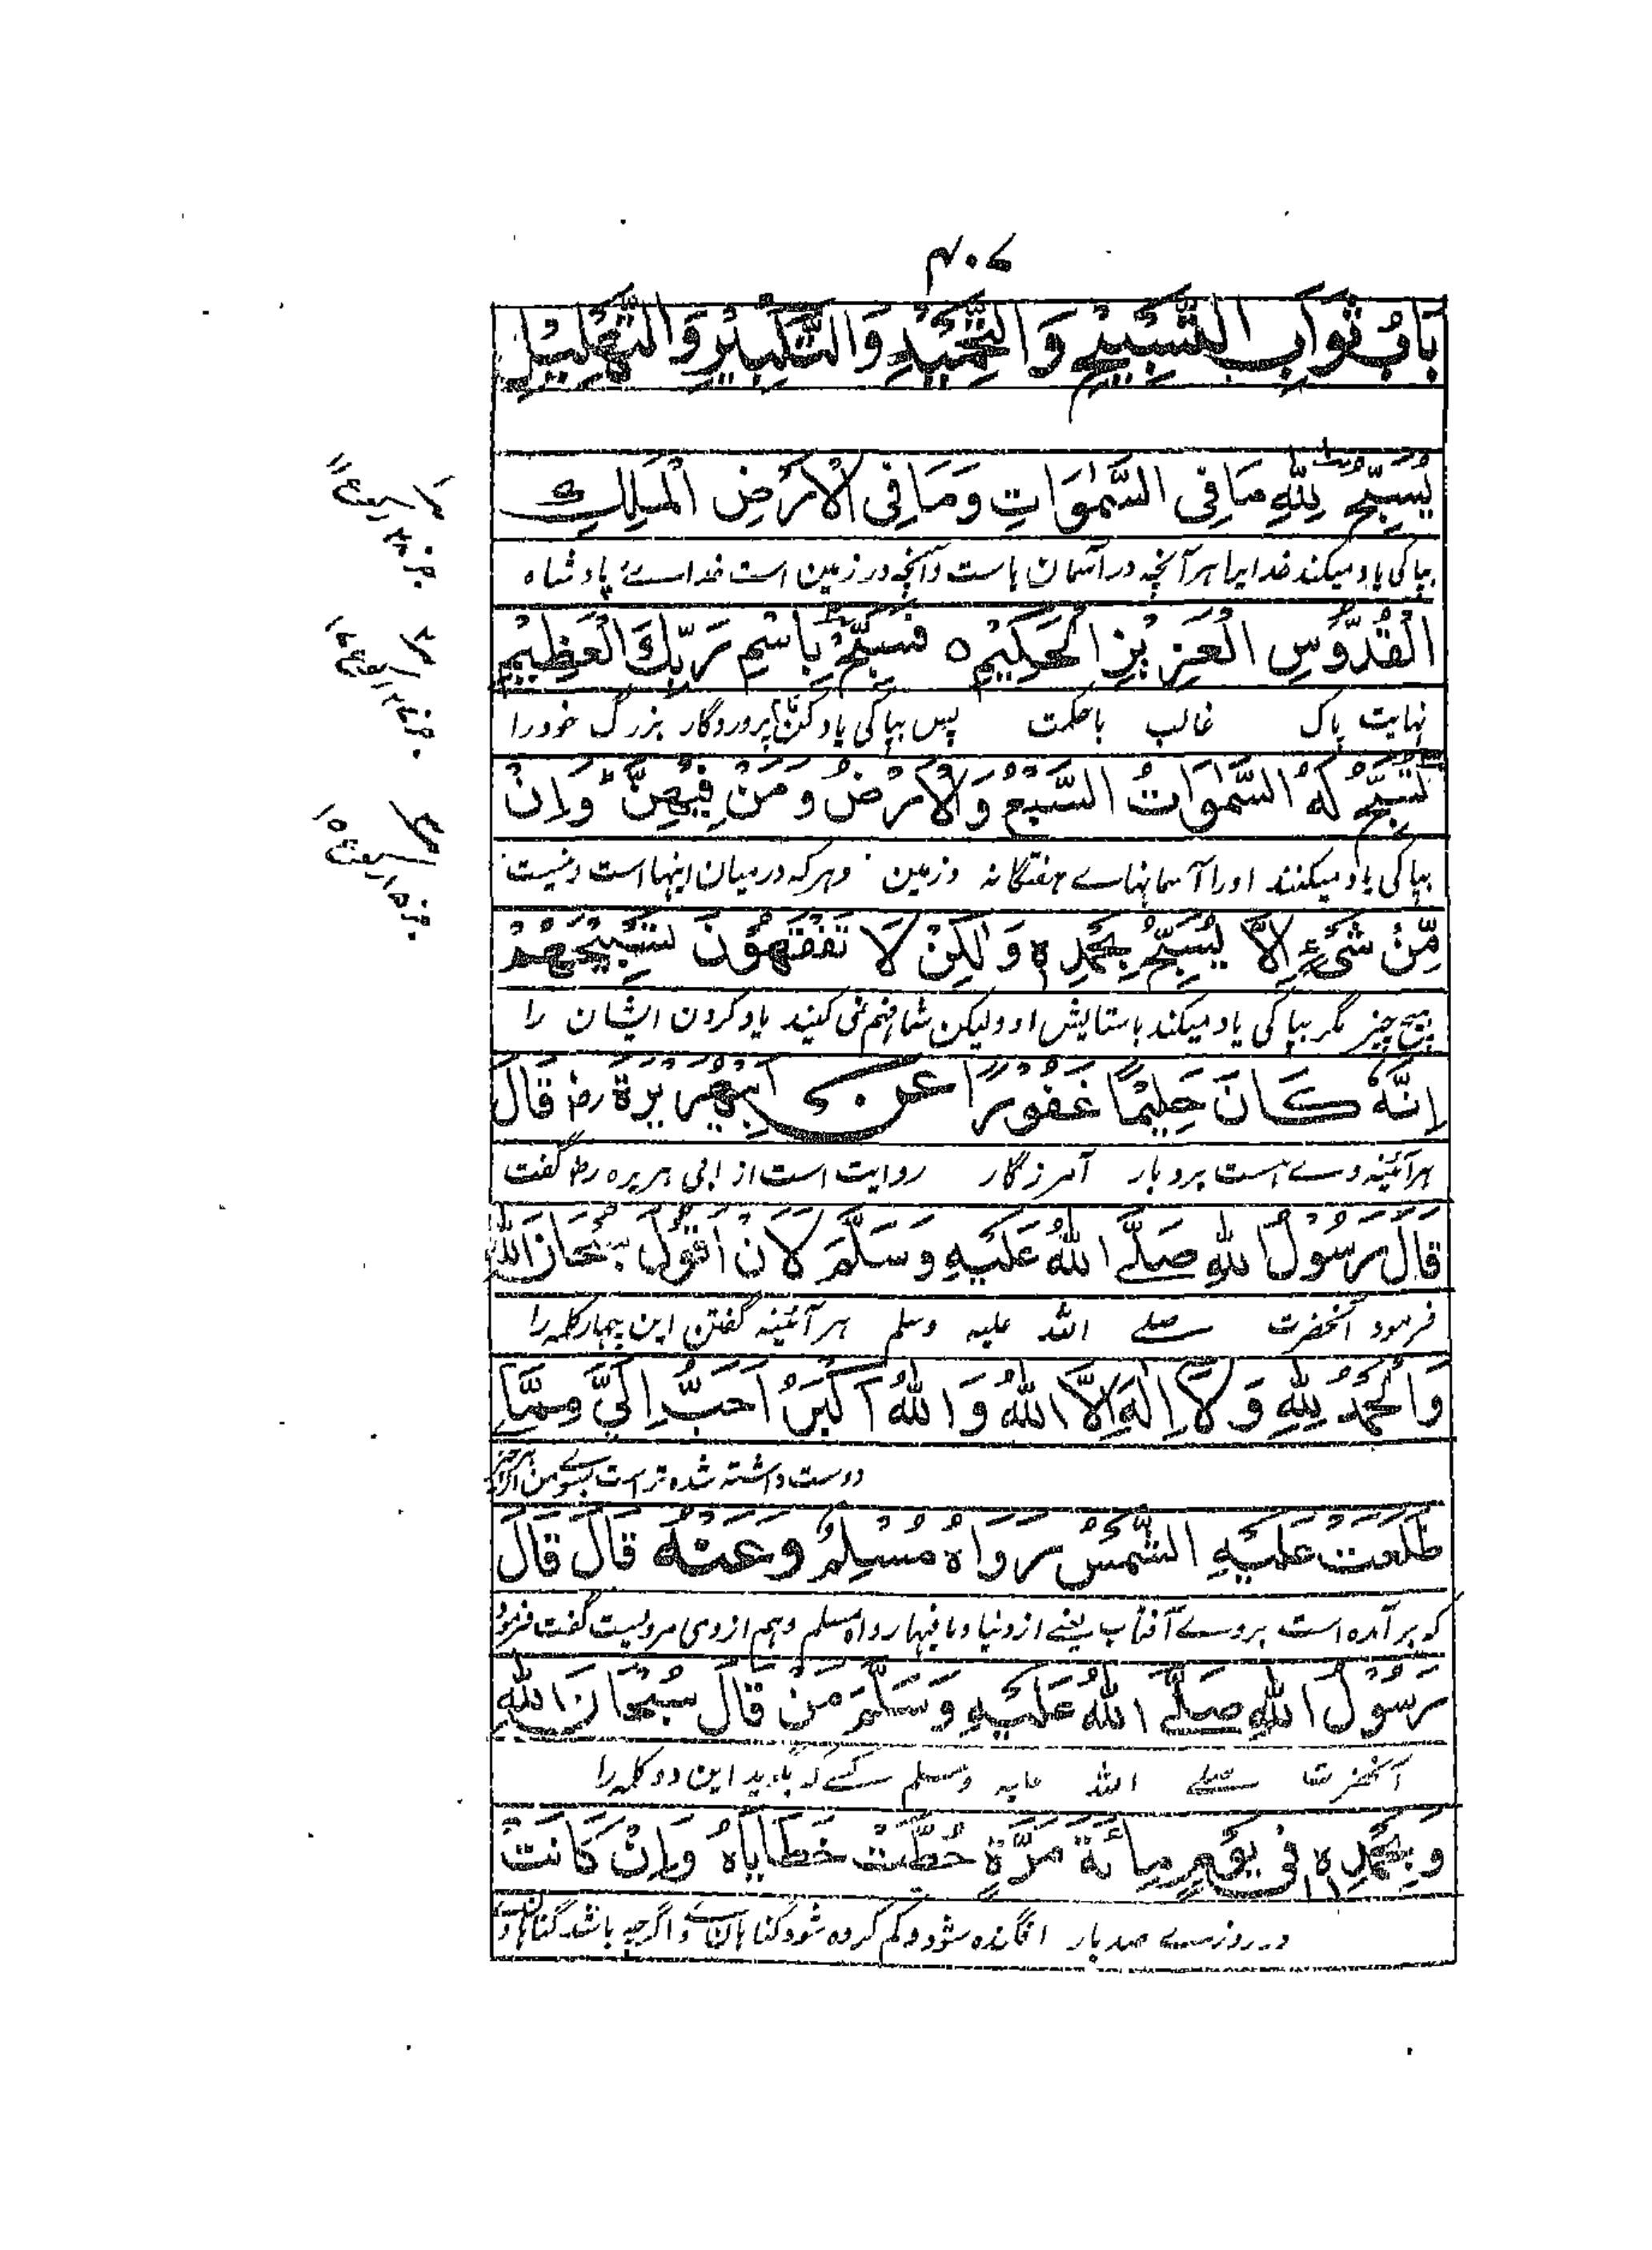 ۴۰۷
بَابُ ثَوَابِ التَّسْبِيْحِ وَالتَّحْمِيْدِ وَالتَّكْبِيْرِ وَالتَّهْلِيْلِ
يُسَبِّحُ لِلّٰهِ مَا فِى السَّمٰوَاتِ وَمَا فِى الْاَرْضِ الْمَلِكِ
بپاکی یاد میکند خدایرا هر آنچه در آسمان هاست وآنچه در زمین است خداے پادشاه
الْقُدُّوْسِ الْعَزِيْزِ الْحَكِيْمِ ه فَسَبِّحْ بِاسْمِ رَبِّكَ الْعَظِيْمِ
نهایت پاک غالب باحکمت پس بپاکی یاد کن پروردگار بزرگ خود را
تُسَبِّحُ لَهُ السَّمٰوَاتُ السَّبْعُ وَالْاَرْضُ وَمَنْ فِيْهِنَّ ط وَاِنْ
بپاکی یاد میکنند اورا آسمانهاے هفتگانه وزمین وهرکه درمیان اینها است ونیست
مِّنْ شَىْءٍ اِلَّا يُسَبِّحُ بِحَمْدِهٖ وَلٰكِنْ لَا تَفْقَهُوْنَ تَسْبِيْحَهُمْ
هیچ چیز مگر بپاکی یاد میکند باستایش او ولیکن شما فهم نمی کنید یاد کردن ایشان را
اِنَّهٗ كَانَ حَلِيْمًا غَفُوْرًا عَنْ اَبِيْ هُرَيْرَةَ رض قَالَ
هر آئینه وے است بردبار آمرزگار روایت است از ابی هریره رض گفت
قَالَ رَسُوْلُ اللهِ صَلَّے اللهُ عَلَيْهِ وَسَلَّمَ لَاَنْ اَقُوْلَ سُبْحَانَ اللهِ
فرمود آنحضرت صلے الله علیه وسلم هر آئینه گفتن این چهار کلمه را
وَالْحَمْدُ لِلّٰهِ وَلَا اِلٰهَ اِلَّا اللهُ وَاللهُ اَكْبَرُ اَحَبُّ اِلَىَّ مِمَّا
دوست داشته شده تر است بسوے من از هرچیز
طَلَعَتْ عَلَيْهِ الشَّمْسُ رَوَاهُ مُسْلِمٌ وَعَنْهُ قَالَ قَالَ
که بر آمده است بروے آفتاب یعنے از دنیا وما فیها رواه مسلم وهم از وی مرویست گفت فرمود
رَسُوْلُ اللهِ صَلَّے اللهُ عَلَيْهِ وَسَلَّمَ مَنْ قَالَ سُبْحَانَ اللهِ
آنحضرت صلے الله علیه وسلم کسے که بگوید این دو کلمه را
وَبِحَمْدِهٖ فِىْ يَوْمٍ مِائَةَ مَرَّةٍ حُطَّتْ خَطَايَاهُ وَاِنْ كَانَتْ
در روزے صد بار افگنده شود وکم کرده شود گناهان وے واگرچه باشد گناهان